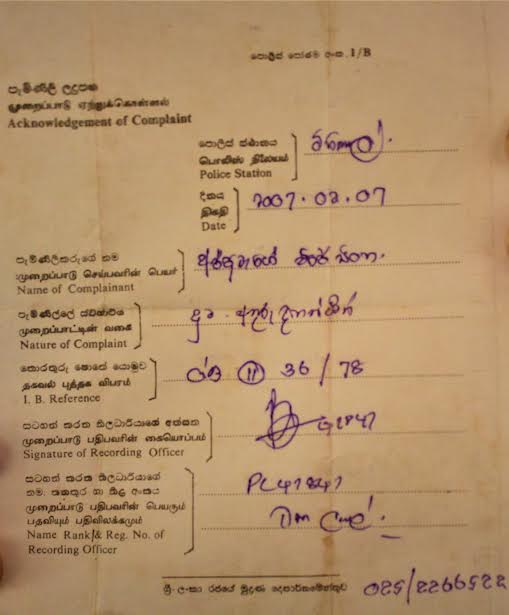 පොලිස් පෝරම අංක 1/B
පැමිණිලි ලදුපත
முறைப்பாடு ஏற்றுக்கொள்ளல்
Acknowledgement of Complaint
පොලිස් ස්ථානය
பொலிஸ் நிலையம்
Police Station
දිනය
திகதி
Date
2007.02.07
පැමිණිලිකරුගේ නම
முறைப்பாடு செய்பவரின் பெயர்
Name of Complainant
පැමිණිල්ලේ ස්වභාවය
முறைப்பாட்டின் வகை
Nature of Complaint
තොරතුරු පොතේ යොමුව
தகவல் புத்தக விபரம்
I. B. Reference
11 36/78
සටහන් කරන නිලධාරියාගේ අත්සන
முறைப்பாடு பதிபவரின் கையொப்பம்
Signature of Recording Officer
සටහන් කරන නිලධාරියාගේ
නම, තනතුර හා නිල අංකය
முறைப்பாடு பதிபவரின் பெயரும்
பதவியும் பதிவிலக்கமும்
Name Rank & Reg. No. of
Recording Officer
PC 47847
ශ්‍රී ලංකා රජයේ මුද්‍රණ දෙපාර්තමේන්තුව
025/2266522